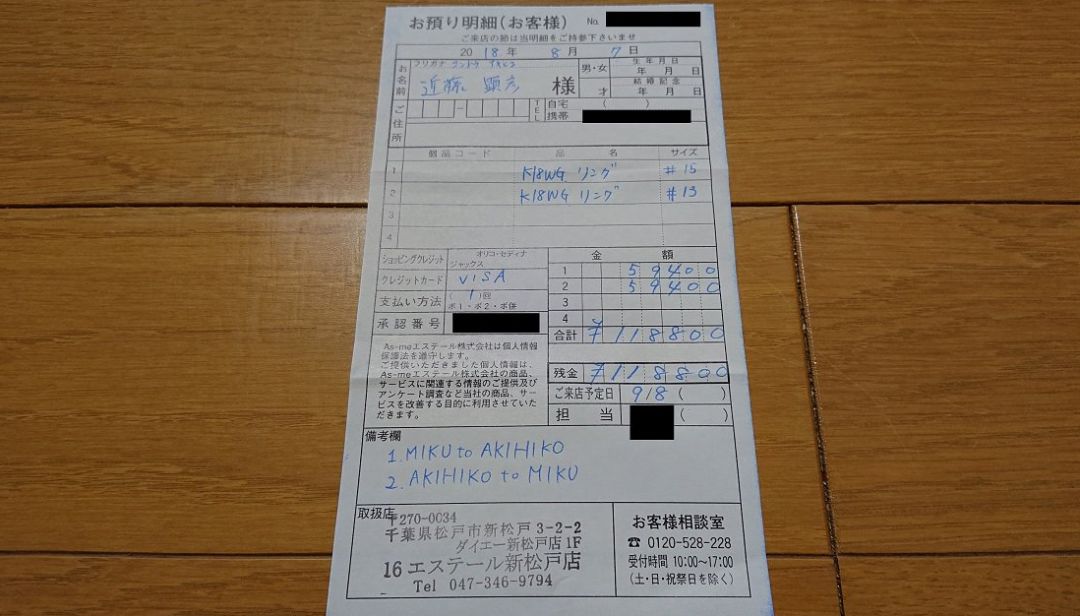 お預り明細(お客様) No.
ご来店の節は当明細をご持参下さいませ
2018年 8月 7日
フリガナ コンドウ アキヒコ
お名前 近藤 顕彦 様
男・女 才
生年月日
年 月 日
結婚記念
年 月 日
ご住所
TEL 自宅 ( )
携帯
個品コード 品名 サイズ
1 K18WG リング #15
2 K18WG リング #13
3
4
ショッピングクレジット オリコ・セディナ ジャックス
クレジットカード VISA
支払い方法 (1)回 ボ1・ボ2・ボ併
承認番号
金額
1 59400
2 59400
3
4
合計 ¥118800
残金 ¥118800
ご来店予定日 9/8 ( )
担当 ( )
As-meエステール株式会社は個人情報
保護法を遵守します。
ご提供いただきました個人情報は、
As-meエステール株式会社の商品、
サービスに関連する情報のご提供及び
アンケート調査など当社の商品、サー
ビスを改善する目的に利用させていた
だきます。
備考欄
1. MIKU to AKIHIKO
2. AKIHIKO to MIKU
取扱店
〒270-0034
千葉県松戸市新松戸3-2-2
ダイエー新松戸店1F
16 エステール新松戸店
Tel 047-346-9794
お客様相談室
☎ 0120-528-228
受付時間 10:00〜17:00
(土・日・祝祭日を除く)